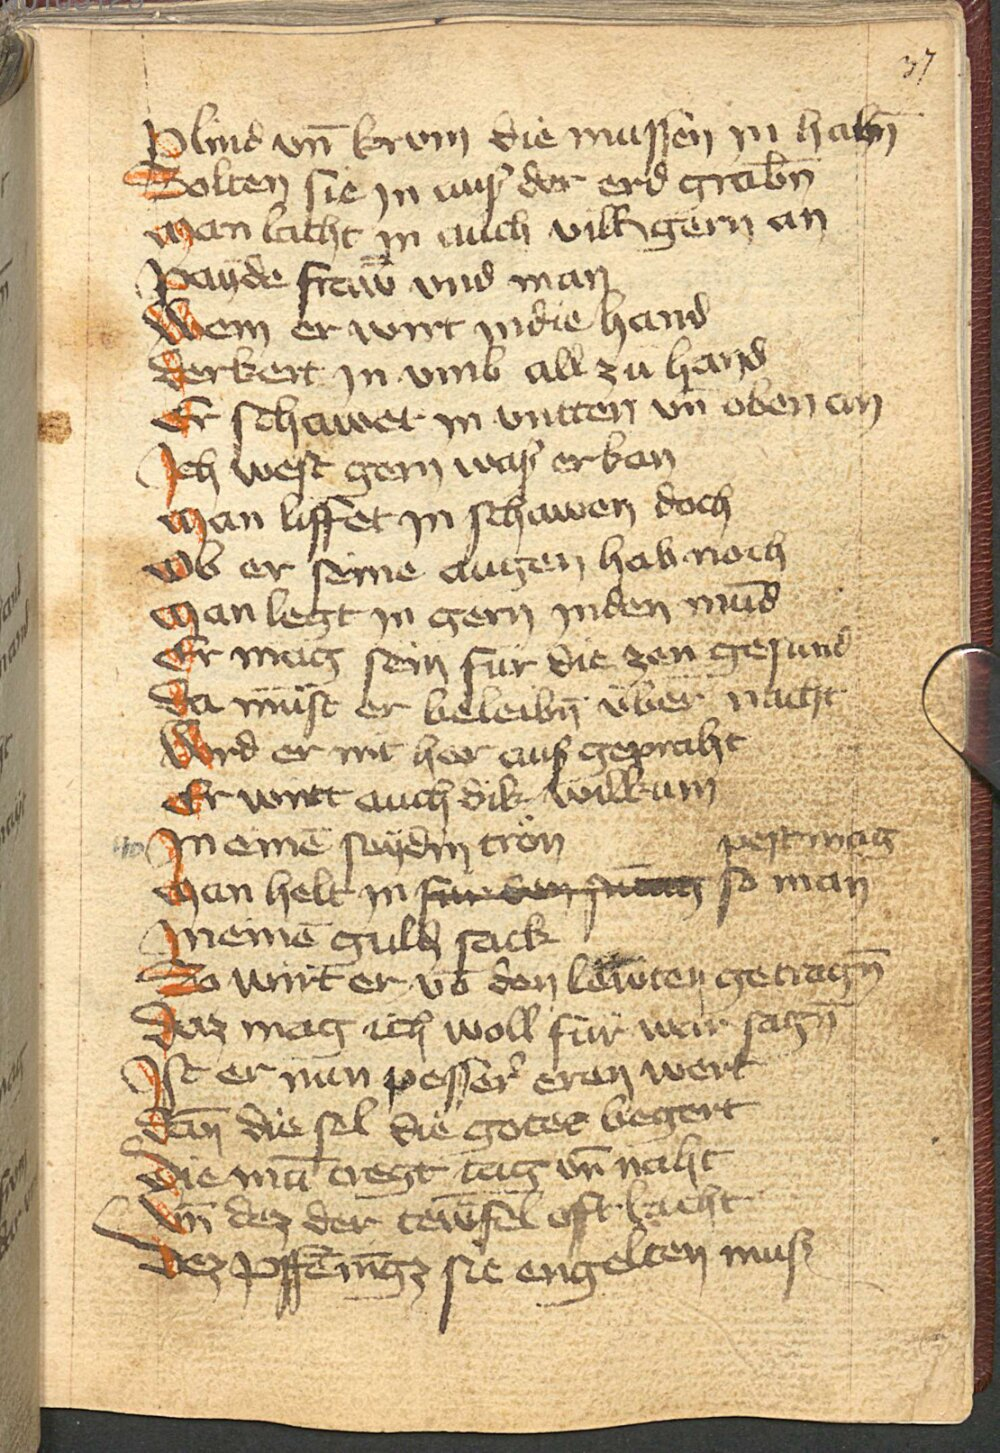 37
Plind vn̄ krvm die mussen in habn̄
Solten sie in auß der erd grabn̄
Man lacht in auch vil gern an
Payde fraw̄ vnd man
Wem er wirt in die hand
Der kert in vmb all zu hand
Er schawet in vntten vn̄ oben an
Ich west gern waß er kan
Man lisset in schawen doch
Ob er seine augen hab noch
Man legt in gern in den mūd
Er mag sein fur die zen gesund
Da müst er beleibn̄ vber nacht
Wird er nit her auß gepraht
Er wirtt auch dik willkum
In einē seydin trön
pest mag
Man helt in so man
In einē guldī sack
So wirt er vō den lewten getragn̄
Daz mag ich woll fur war sagn̄
Ist er nun pesser eren wert
Dan̄ die sel die gotes begert
Die mā tregt tag vn̄ naht
Vn̄ dez der tewfel oft lacht
Dez pffēnīgz sie engelten muß